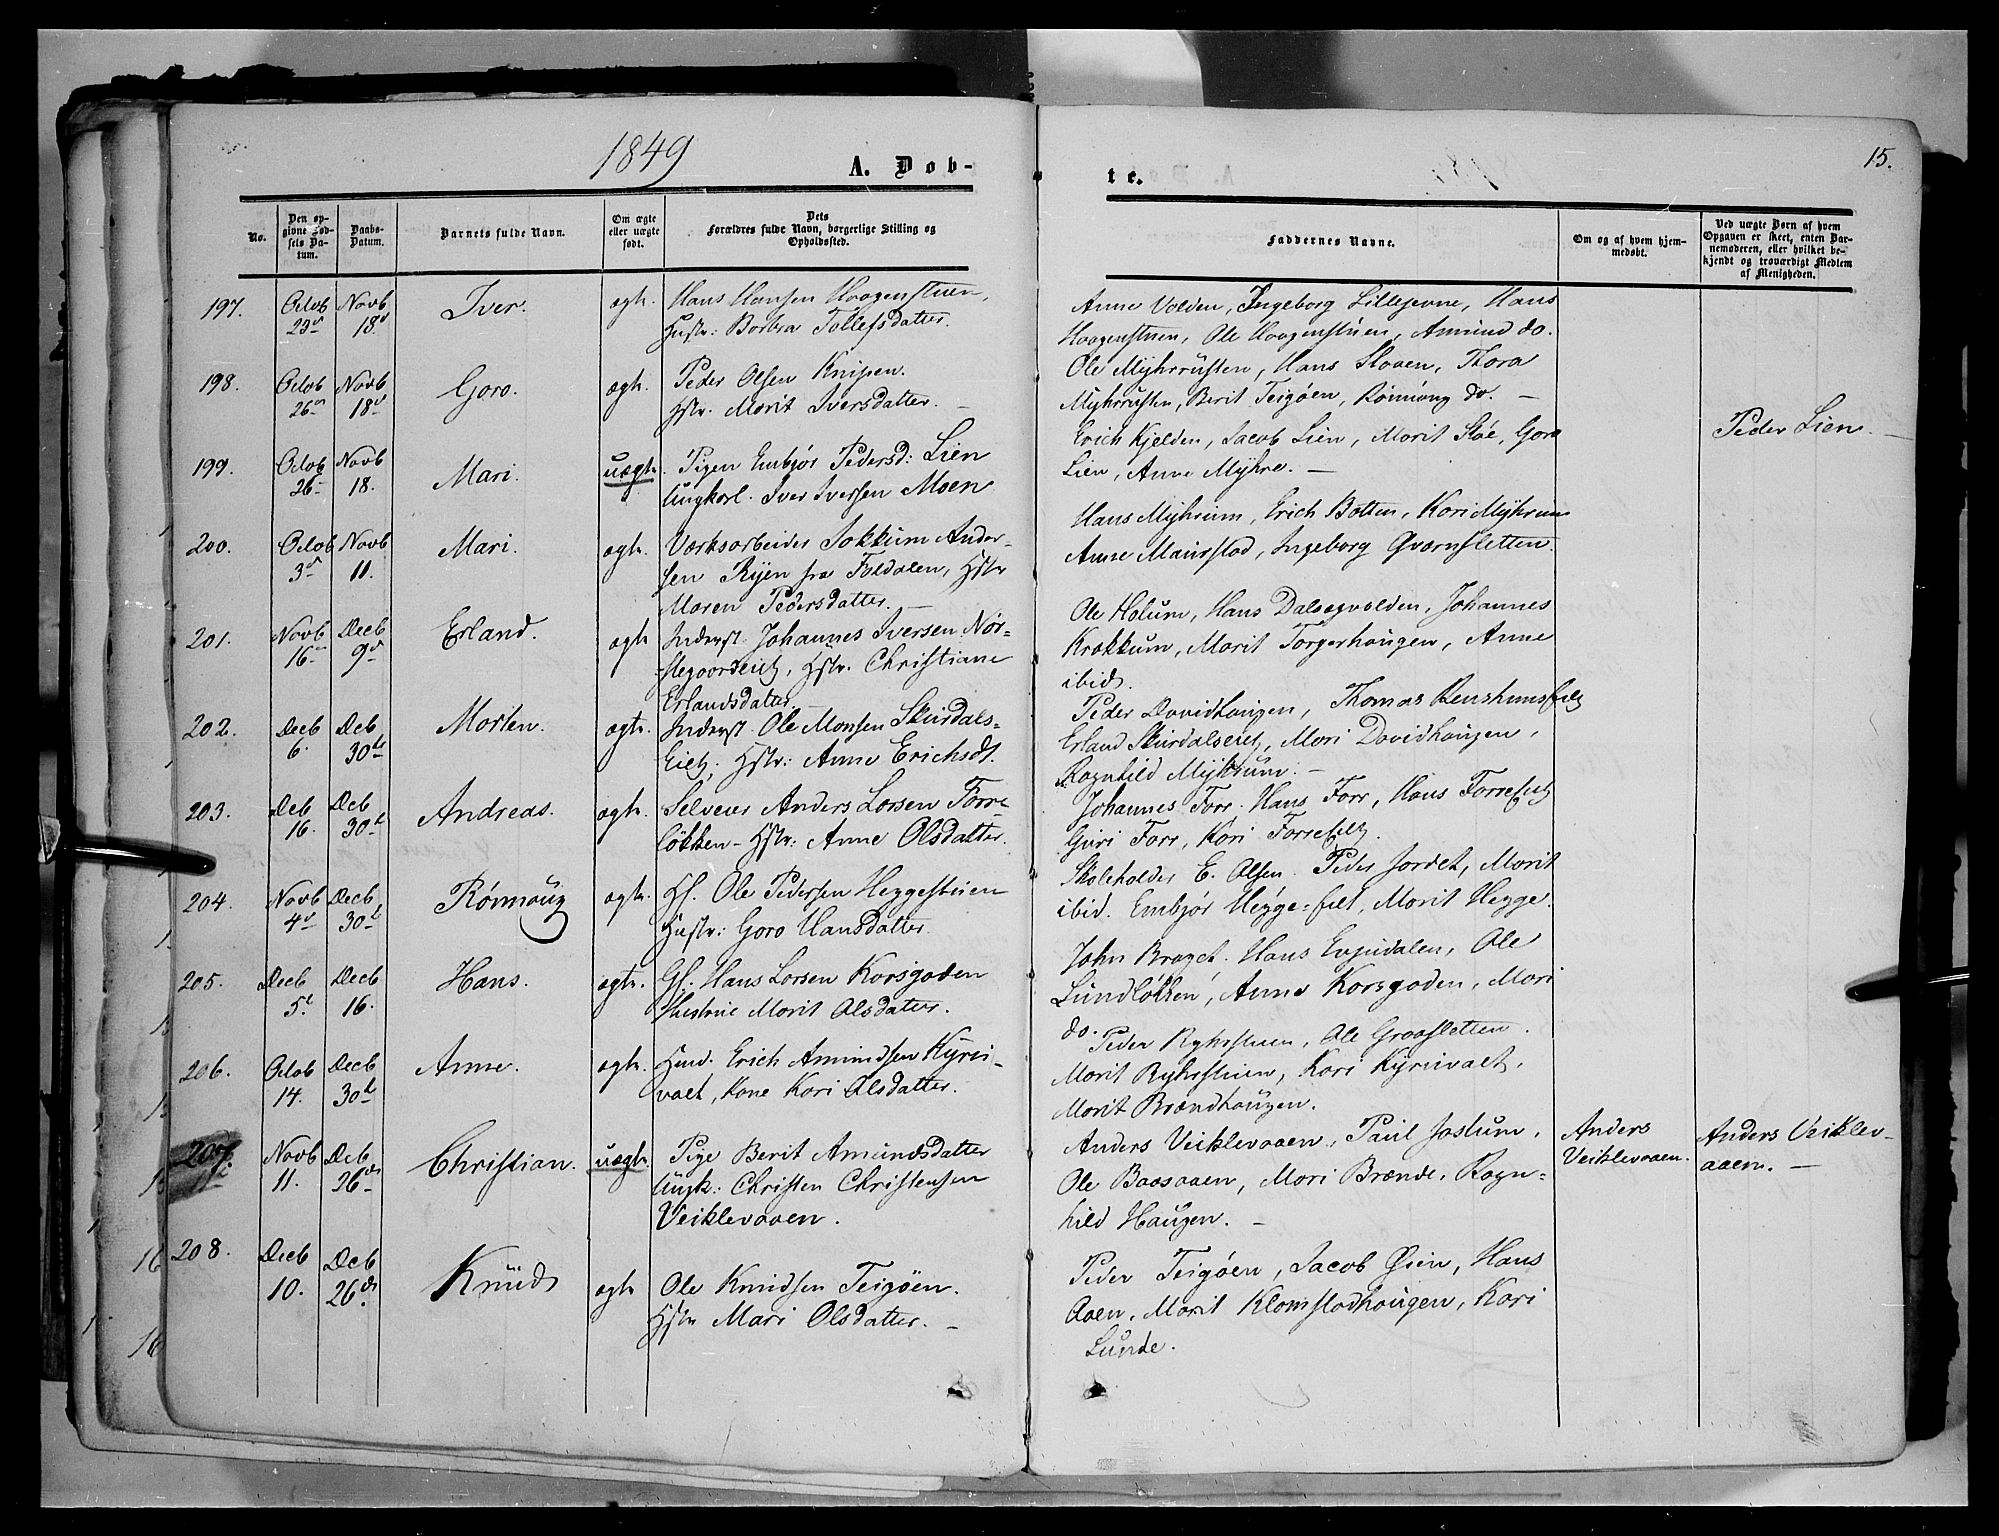 1849
A. Døb-
te.
15.
No.
Den op-
givne Fød-
sels Da-
tum.
Daabs-
Datum.
Barnets fulde Navn.
Om ægte
eller uægte
født.
Dets
Forældres fulde Navn, borgerlige Stilling og
Opholdssted.
Faddernes Navne.
Om og af hvem hjem-
medøbt.
Ved uægte Børn af hvem
Opgaven er skeet, enten Bar-
nemoderen, eller hvilket be-
kjendt og troværdigt Medlem
af Menigheden.
197. Octob Novb Iver. ægte. Hans Hansen Haagenstuen,
23de 18de Hustr: Barbra Tollefsdatter.
Anne Volden, Ingeborg Lillejevne, Hans
Haagenstuen, Ole Haagenstuen, Amund do.
198. Octob Novb Goro. ægte. Peder Olsen Knipen.
26de 18de Hstr. Marit Iversdatter. —
Ole Myhrrusten, Hans Slaaen, Thora
Myhrrusten, Berit Teigøen, Rønnoug do. —
199. Octob Novb Mari. uægte. Pigen Embjør Pedersd: Lien
26 18. Ungkarl. Iver Iversen Moen
Erich Kjelden, Jacob Lien, Marit Sløe, Goro
Lien, Anne Myhre. —
Peder Lien. —
200. Octob Novb Mari. ægte. Værksarbeider Jokkum Ander-
3de 11. sen Ryen fra Foldalen, Hstr
Maren Pedersdatter. —
Hans Myhrum, Erich Botten, Kari Myhrum
Anne Maurstad, Ingeborg Qvarnsletten.
201. Novb Decb Erland. ægte Inderst. Johannes Iversen Nør-
16 9de stegaardseiet, Hstr. Christiane
Erlandsdatter.
Ole Holum, Hans Dalsegvolden, Johannes
Krokkum, Marit Torgerhaugen, Anne
ibid.
202. Decb Deb Morten. ægte. Inderst. Ole Monsen Skurdals-
6. 30te Eiet, Hstr: Anne Erichsdt.
Peder Davidhaugen, Thomas
Erland Skurdalseiet, Mari Davidhaugen,
Ragnhild Myhrum. —
203. Deb Deb Andreas. ægte. Selveier Anders Larsen Forre-
16. 30te løkken – Hstr: Anne Olsdatter.
Johannes Forr. Hans Forr, Hans Forreeiet
Guri Forr, Kari Forreeiet.
204. Novb Decb Rønnoug ægte. Hf. Ole Pedersen Heggestuen
4de 30te Hustr: Goro Hansdatter.
Skoleholder E. Olsen. Peder Jordet, Marit
ibid. Embjør Hegge-eiet, Marit Hegge.
205. Decb Decb Hans. ægte. Gf. Hans Larsen Korsgaden
5te 16. Hustrue Marit Olsdatter.
John Braget. Hans Evjudalen, Ole
Lundløkken, Anne Korsgaden, Mari
do.
206. Octob Decb Anne. ægte. Huusd. Erich Amundsen Kyrui-
14. 30te vaet, Kone Kari Olsdatter.
Peder Ryhrstuen, Ole Graasletten.
Marit Ryhrstuen, Kari Kyruivaet,
Marit Brændhaugen.
207. Novb Deb Christian. uægte. Pige Berit Amundsdatter
11. 26de Ungk: Christen Christensen
Veiklevaaen.
Anders Veiklevaaen, Paul Joslum,
Ole Baasaaen, Mari Brænde, Ragn-
hild Haugen. —
Anders
Veiklevaaen.
Anders Veiklev-
aaen. —
208. Decb Deb Knud ægte Ole Knudsen Teigøen.
10. 26de Hstr Mari Olsdatter. —
Peder Teigøen, Jacob Øien, Hans
Aaen, Marit Klomstadhaugen, Kari
Lunde.